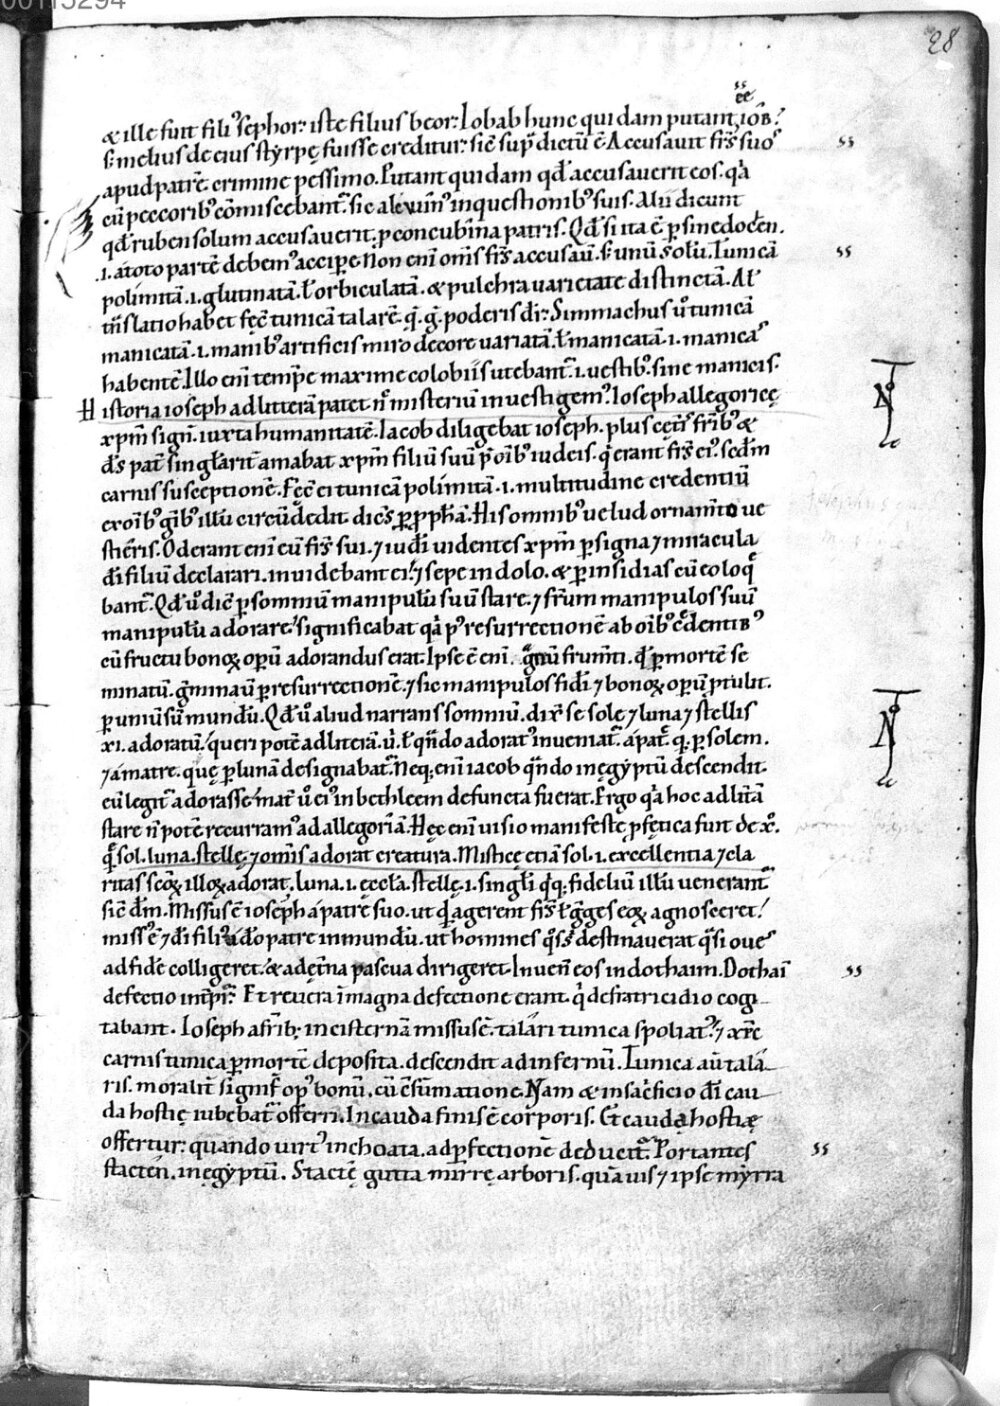 00115294
28
ee
& ille fuit fili⁹ sephor: iste filius beor: Iobab hunc quidam putant, iob̄.
s; melius de eius styrpę fuisse creditur: sic̄ sup̄ dictū ē. Accusavit fr̄s suos
apud patrē crimine pessimo. Putant quidam qđ accusaverit eos. qa
cū peccorib⁹ cōmiscebant͛. sic alcuin⁹ in questionib⁹ suis. Alii dicunt
qđ ruben solum accusaverit. p concubina patris. Qđ si ita ē. p sinedochen.
.i. a toto partē debem⁹ accipe. Non eni om̄s fr̄s accusav̄. s; unū solū. Tunicā
polimitā .i. glutinatā. ł orbiculatā. & pulchra varietate distinctā. Al
trn̄slatio habet fec̄ tunicā talarē. q̨ g̊ poderis dr̄. Simmachus ů tunicā
manicatā .i. manib⁹ artificis miro decore variatā. ł manicatā .i. manicas
habentē. Illo eni temp̄e maxime colobiis utebant͛ .i. vestib⁹ sine manicis.
Historia ioseph ad litterā patet nc̄ misteriū investigem⁹. Ioseph allegoricę
xpm̄ sign̄. iuxta humanitatē. Iacob diligebat ioseph. plus cęt̄is fr̄ib⁹ &
ds̄ pat̄ singlarit̄ amabat xpm̄ filiū suū p̄ oīb⁹ iudeis. q̇ erant fr̄s ei⁹. scđm
carnis susceptionē. Fec̄ ei tunicā polimitā .i. multitudine credentiū
ex oīb⁹ g̅ib⁹ illū circūdedit. dicēs p pph̄ā. His omnib⁹ velud ornam̄to ve
stieris. Oderant eni eū fr̄s sui. ⁊ iudi videntes xpm̄ p signa ⁊ miracula
đi filiū declarari. invidebant ei. ⁊ sepe in dolo. & p insidias eū eoloq̄
bant͛. Qđ ů dic̄ p somniū manipulū suū stare. ⁊ fr̄um manipulos suū
manipulū adorare: significabat qa p⁹ resurrectionē ab oīb⁹ c̄dentib⁹
cū fructu bonoꝝ opū adorandus erat. Ipse ē eni. gnū frum̄ti. q̄ p mortē se
minatū. gminav̄ p resurrectionē. ⁊ sic manipulos fidi ⁊ bonoꝝ opū ptulit.
p univ̄sū mundū. Qđ ů aliud narrans somniū. dix̄ se solē ⁊ luna ⁊ stellis
xi. adoratū. queri potē ad literā. ů. ł qn̄do adorat⁹ inveniat͛. a pat̄. q̨ p solem.
⁊ a matre. quę p lunā designabat͛. Neq; eni iacob qn̄do in ęgyptū descendit.
eū legit͛ adorasse. mat̄ ů ei⁹ in bethleem defuncta fuerat. Ergo qa hoc ad lit̄ā
stare n̄ potē recurram⁹ ad allegoriā. Hęc eni visio manifestę pfętica fuit de xo.
q̄ sol. luna. stellę. ⁊ om̄s adorat creatura. Misticę etiā sol .i. excellentia ⁊ cla
ritas scōꝝ illoꝝ adorat, luna .i. ęccła. stellę .i. singli q̇q; fideliū illū venerant͛
sic̄ dm̄. Missus ē ioseph a patre suo. ut qd agerent fr̄s ł gges eoꝝ agnosceret.
miss⁹ ē ⁊ đi fili⁹ a dō patre in mundū. ut homines q̊s destinaverat q̄si oves
ad fidē colligeret. & ad ęt̄na pascua dirigeret. Invenit eos in dothaim. Dothaī
defectio int̄p̄r. Et revera ī magna defectione erant. q̇ de fratricidio cogi
tabant. Ioseph a fr̄ib; in cisternā missus ē. talari tunica spoliat⁹. ⁊ xr̄c
carnis tunica p mortē deposita. descendit ad infernū. Tunica aū tala
ris. moralit͛ signif̄ op⁹ bonū. cū c̄sumatione. Nam & in sac̄ficio dī cau
da hostię iubebat͛ offerri. In cauda finis ē corporis. Et cauda hostiæ
offertur: quando virt⁹ inchoata. ad pfectionē deducit͛. Portantes
stacten. in ęgyptū. Stactē gutta mirrę arboris. quavis ⁊ ipse myrra